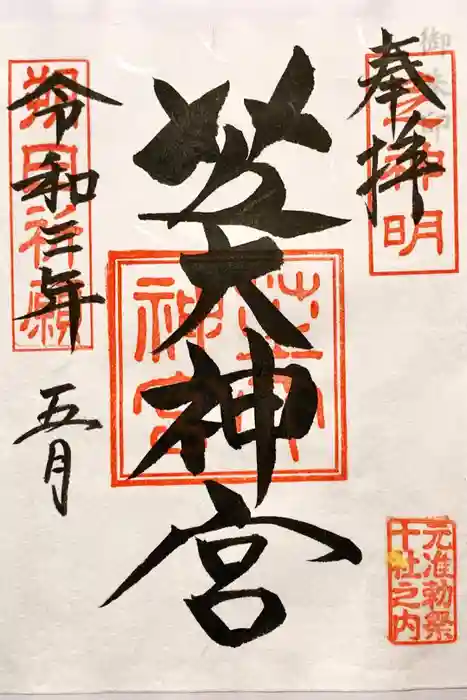 奉拝
芝神明
芝大神宮
芝大神宮
元准勅祭
十社之内
令和三年
五月
朔日祈願